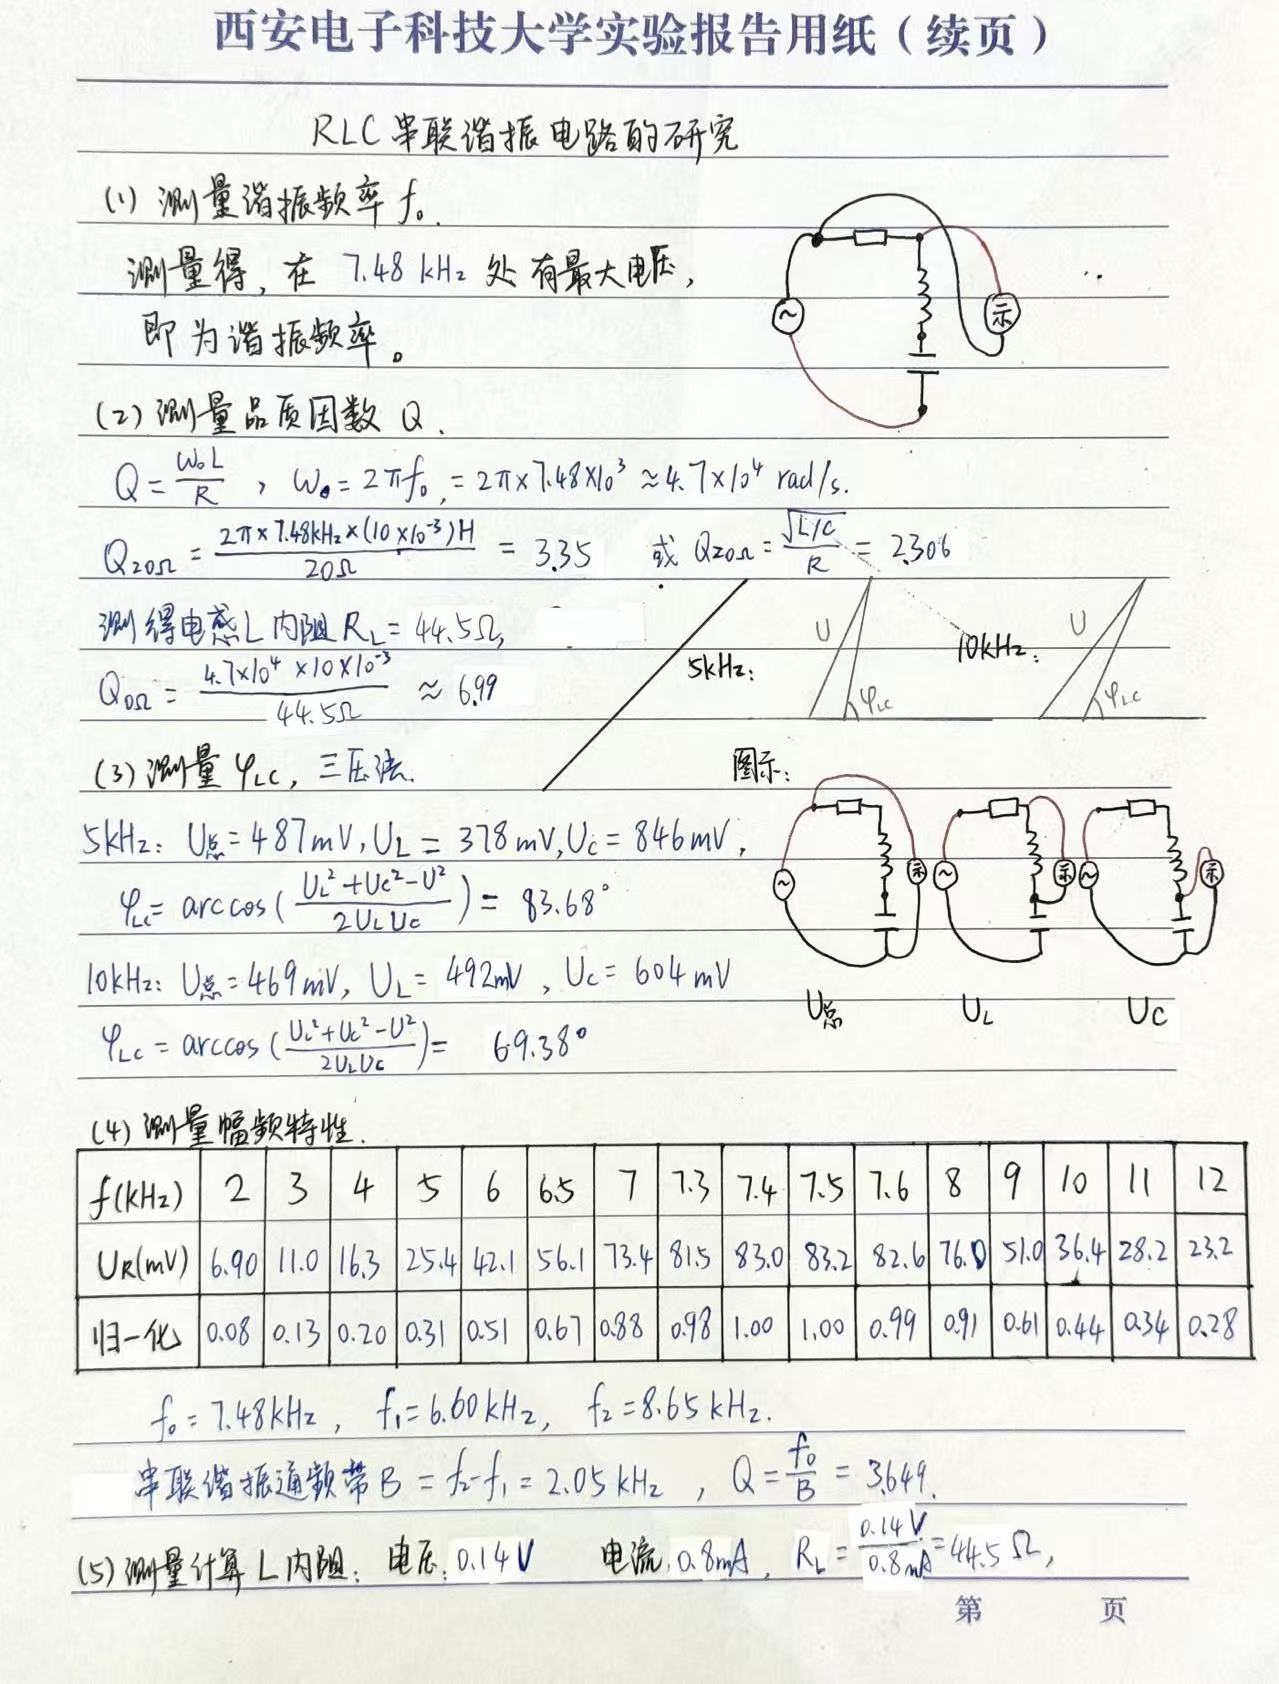 西安电子科技大学实验报告用纸（续页）
RLC串联谐振电路的研究
(1) 测量谐振频率 f₀.
测量得，在 7.48 kHz 处有最大电压，
即为谐振频率。
示
(2) 测量品质因数 Q.
Q = ω₀L/R , ω₀ = 2πf₀ = 2π×7.48×10³ ≈ 4.7×10⁴ rad/s.
Q20Ω = 2π×7.48kHz×(10×10⁻³)H / 20Ω = 3.35 或 Q20Ω = √(L/C) / R = 2.306
测得电感L内阻 RL = 44.5Ω,
Q0Ω = 4.7×10⁴ ×10×10⁻³ / 44.5Ω ≈ 6.99
5kHz: U φLC 10kHz: U φLC
(3) 测量 φLC, 三压法. 图示:
5kHz: U总 = 487mV, UL = 378mV, UC = 846mV,
φLC = arccos( (UL²+UC²-U²) / 2ULUC ) = 83.68°
示 示 示
10kHz: U总 = 469mV, UL = 492mV, UC = 604mV
U总 UL UC
φLC = arccos( (UL²+UC²-U²) / 2ULUC ) = 69.38°
(4) 测量幅频特性.
f(kHz) 2 3 4 5 6 6.5 7 7.3 7.4 7.5 7.6 8 9 10 11 12
UR(mV) 6.90 11.0 16.3 25.4 42.1 56.1 73.4 81.5 83.0 83.2 82.6 76.0 51.0 36.4 28.2 23.2
归一化 0.08 0.13 0.20 0.31 0.51 0.67 0.88 0.98 1.00 1.00 0.99 0.91 0.61 0.44 0.34 0.28
f₀ = 7.48kHz, f₁ = 6.60kHz, f₂ = 8.65kHz.
串联谐振通频带B = f₂-f₁ = 2.05kHz , Q = f₀/B = 3.649.
(5) 测量计算L内阻: 电压: 0.14V 电流: 0.8mA, RL = 0.14V/0.8mA = 44.5Ω,
第 页